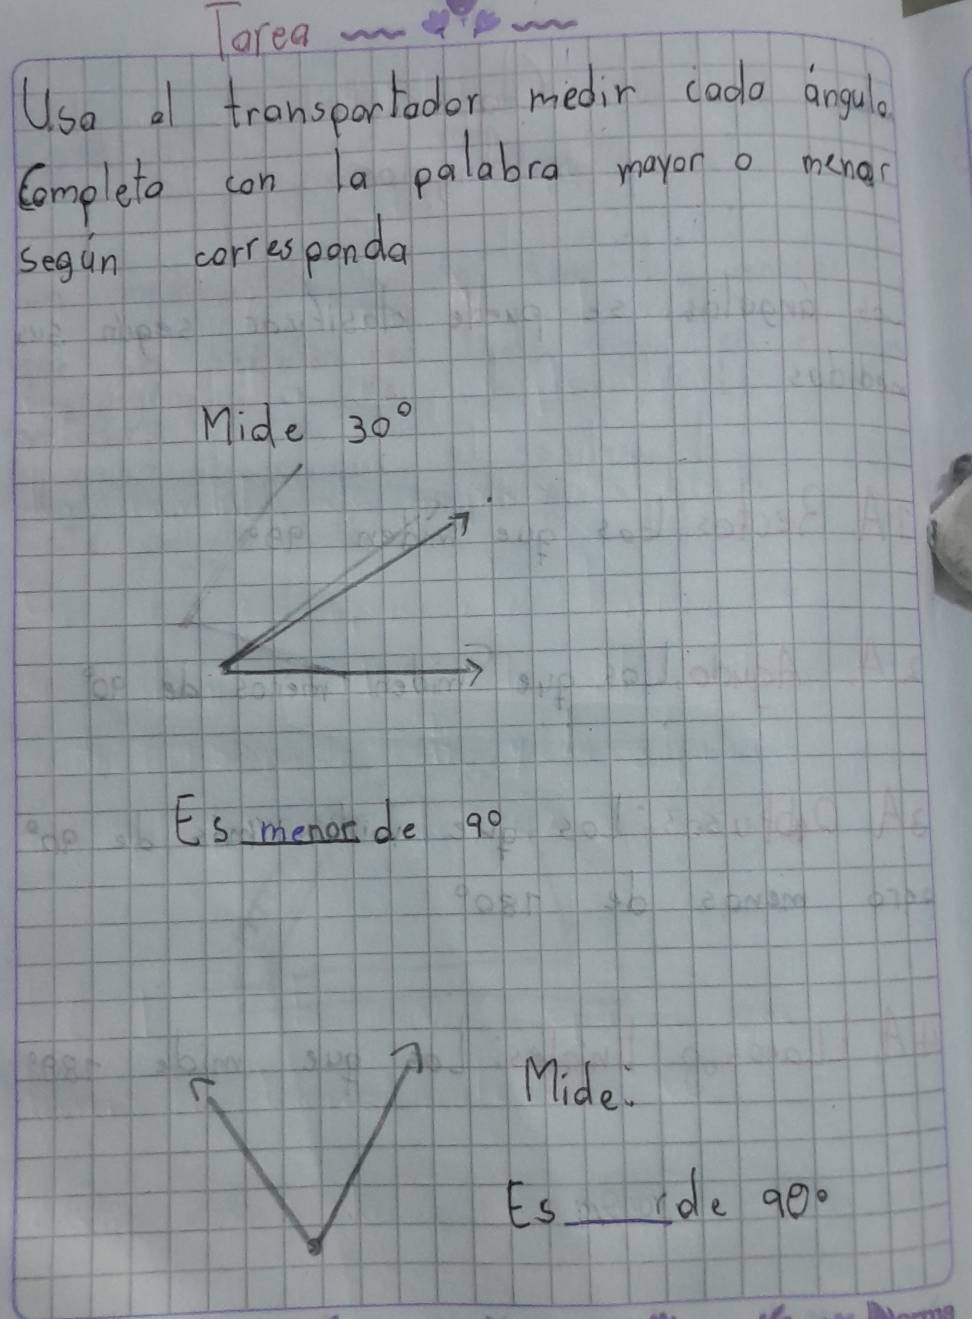 Tarea
Usa el transportador medir cada ángulo
Completa con la palabra mayor o menor
según corresponda
Mide 30°
Es menor de 9°
Mide:
Es ____ de 90°
Norma